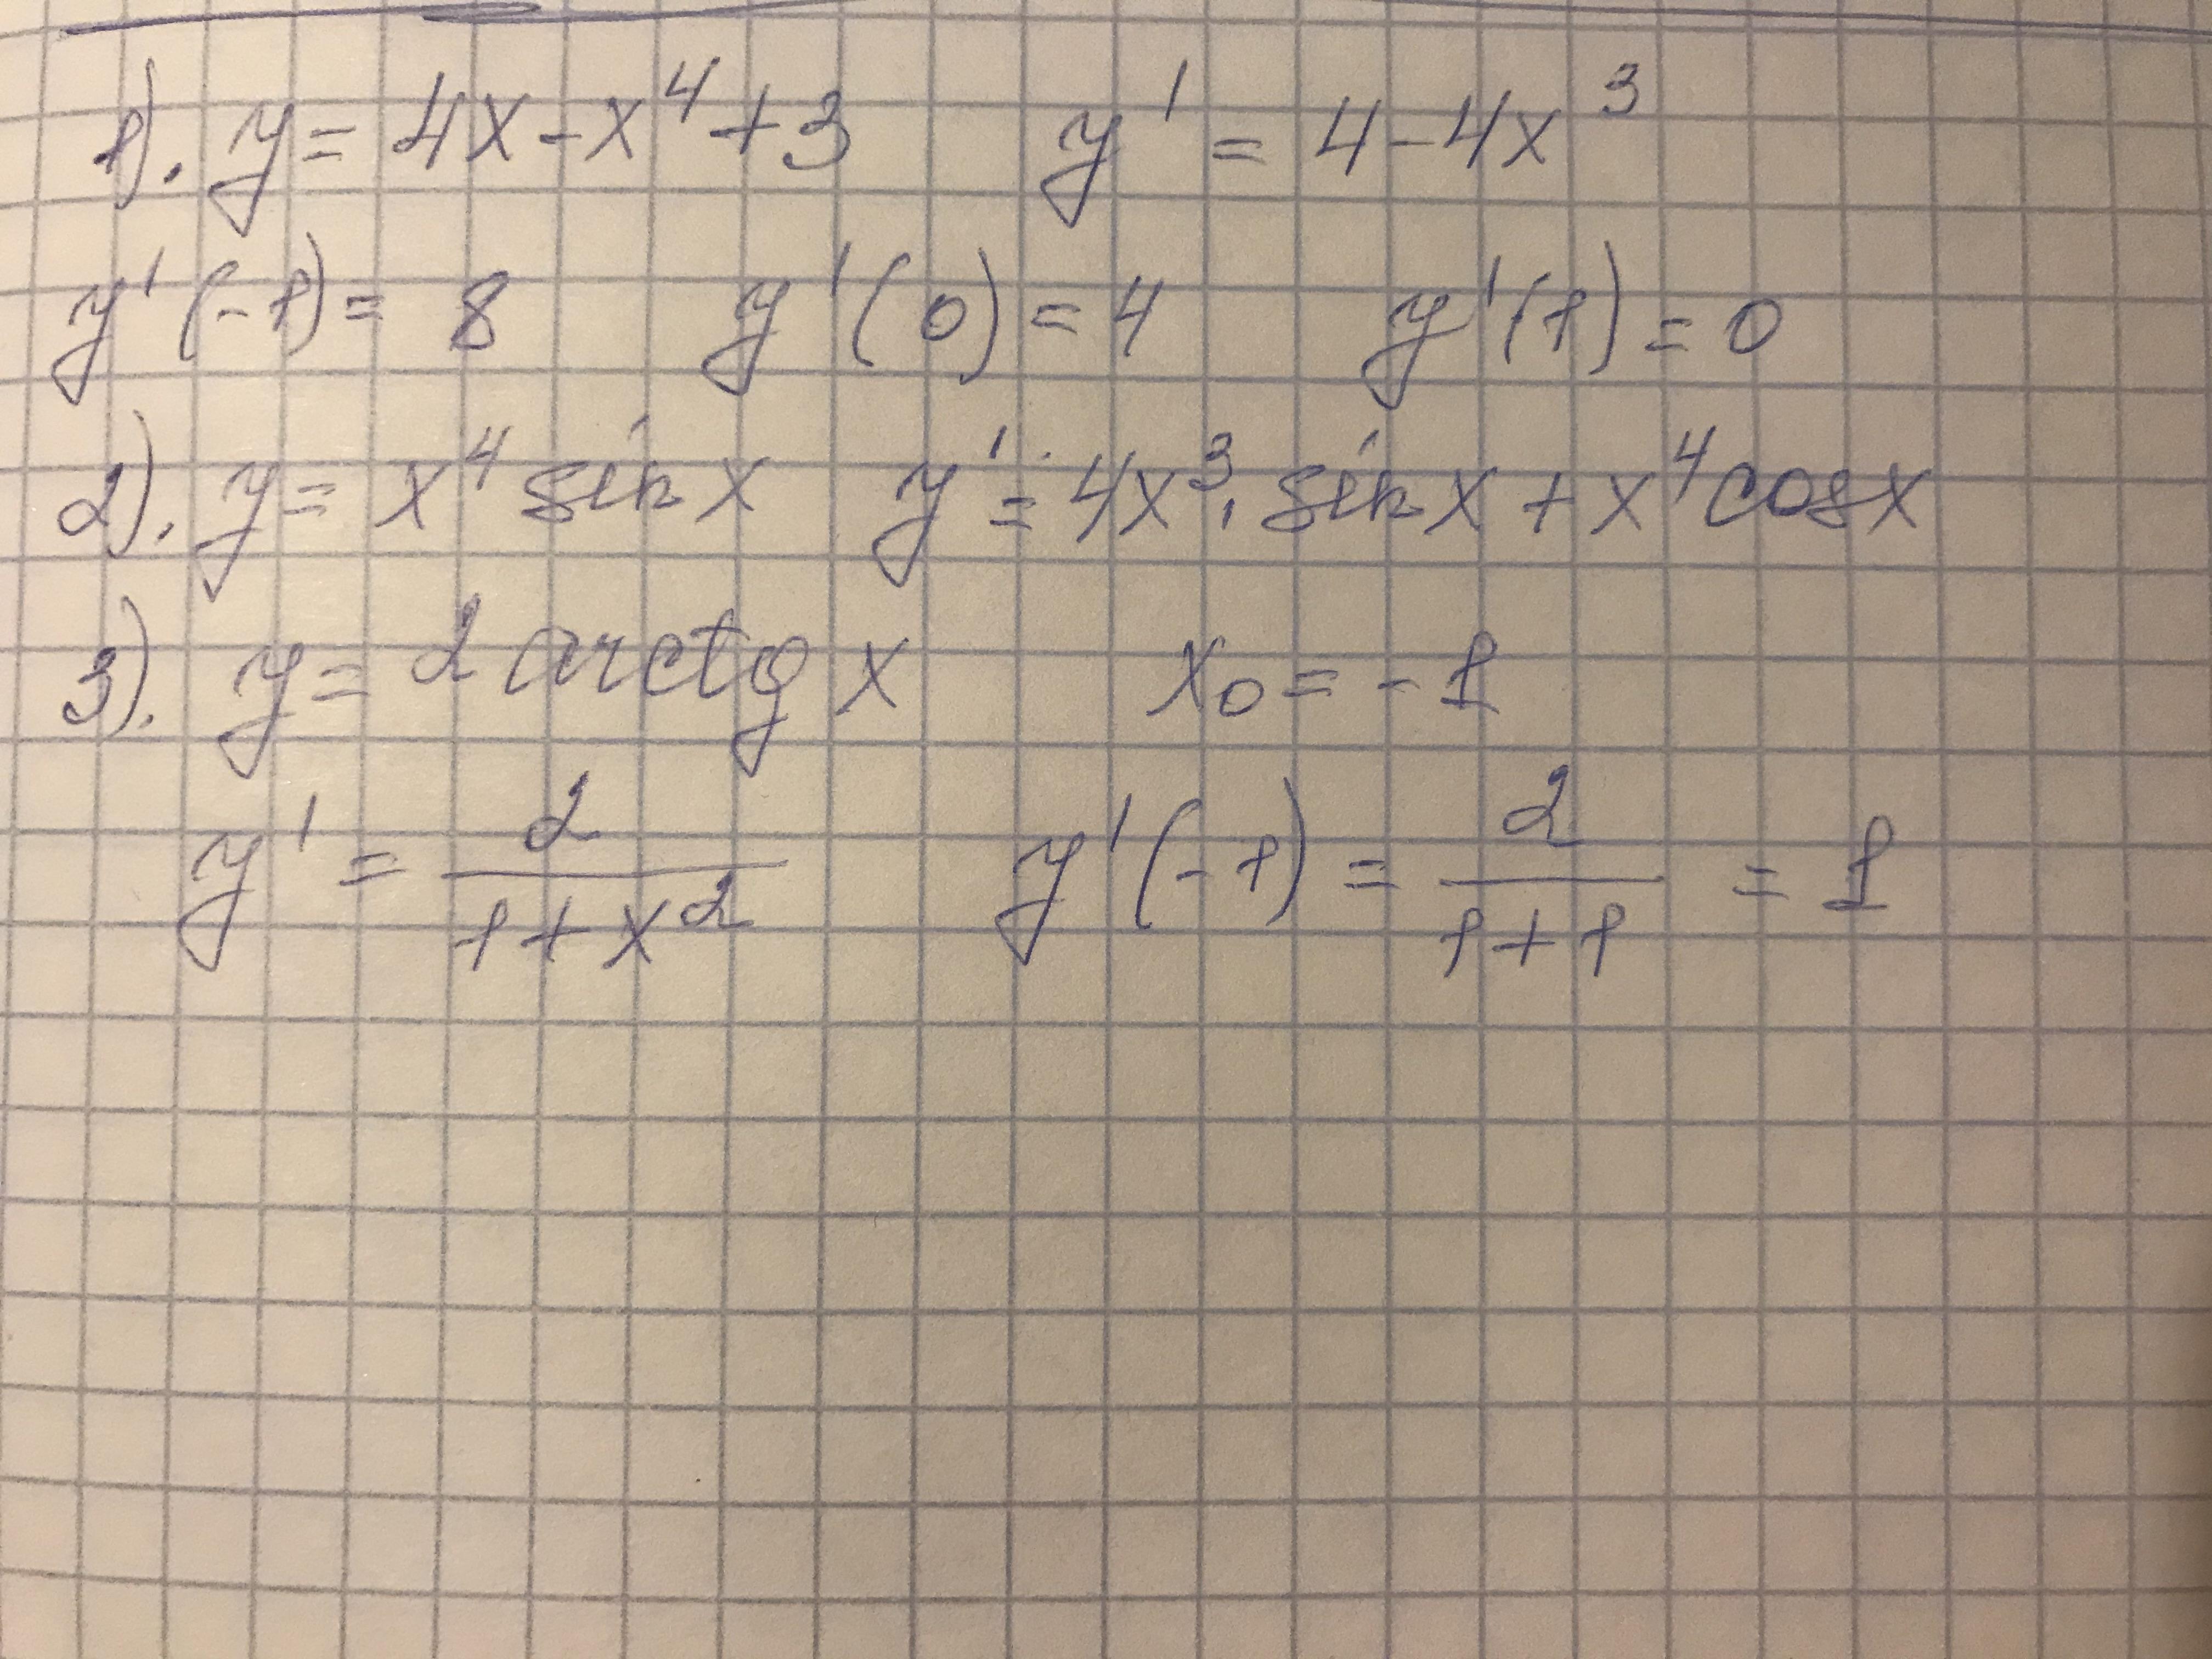 1). y = 4x - x⁴ + 3 y' = 4 - 4x³
y'(-1) = 8 y'(0) = 4 y'(1) = 0
2). y = x⁴ sin x y' = 4x³ · sin x + x⁴ cos x
3). y = 2 arctg x x₀ = -1
y' = 2/(1 + x²) y'(-1) = 2/(1 + 1) = 1